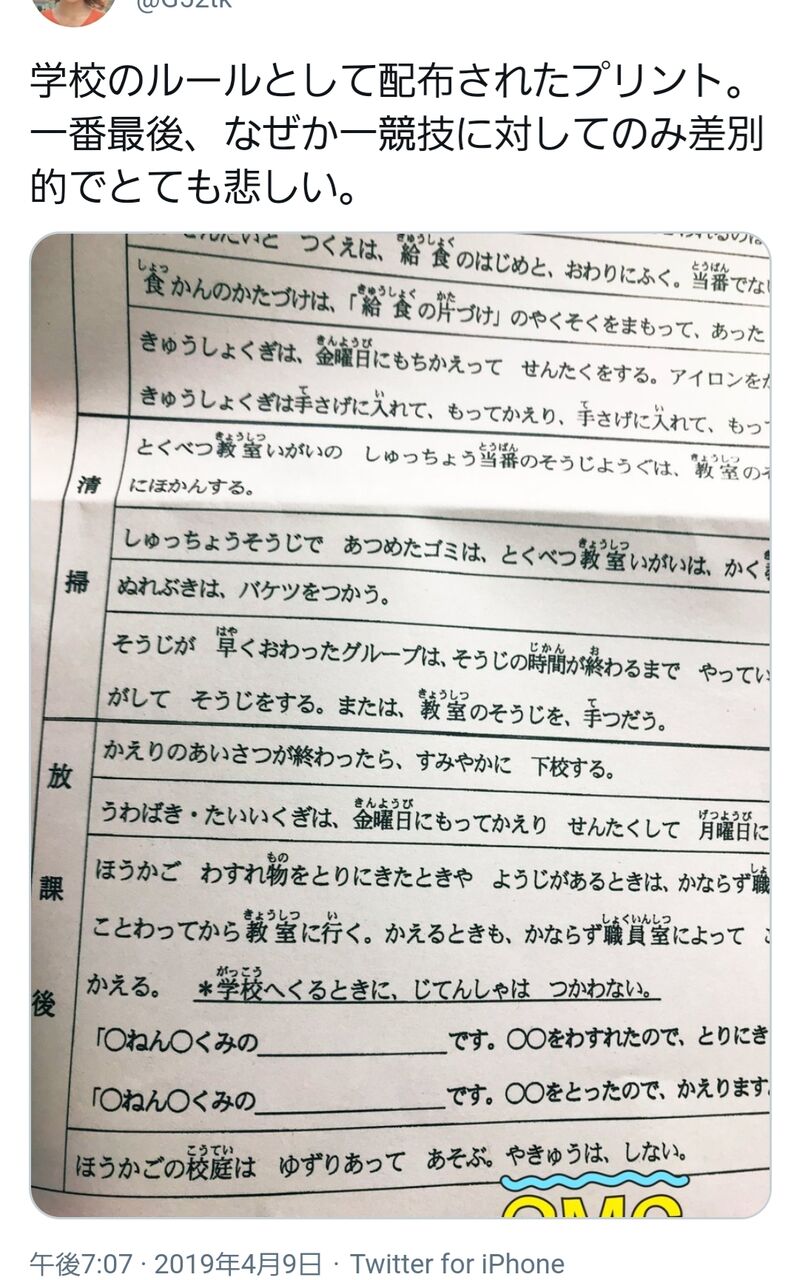 @G52tk
学校のルールとして配布されたプリント。
一番最後、なぜか一競技に対してのみ差別
的でとても悲しい。
つくえは、給食のはじめと、おわりにふく。当番でな
食かんのかたづけは、「給食の片づけ」のやくそくをまもって、あった
きゅうしょくぎは、金曜日にもちかえって せんたくをする。アイロンをか
きゅうしょくぎは手さげに入れて、もってかえり、手さげに入れて、もっ
とくべつ教室いがいの しゅっちょう当番のそうじようぐは、教室のそ
清
にほかんする。
しゅっちょうそうじで あつめたゴミは、とくべつ教室いがいは、かく
掃
ぬれぶきは、バケツをつかう。
そうじが 早くおわったグループは、そうじの時間が終わるまで やってい
がして そうじをする。または、教室のそうじを、手つだう。
放
かえりのあいさつが終わったら、すみやかに 下校する。
うわばき・たいいくぎは、金曜日にもってかえり せんたくして 月曜日に
課
ほうかご わすれ物をとりにきたときや ようじがあるときは、かならず職
ことわってから教室に行く。かえるときも、かならず職員室によって
後
かえる。 *学校へくるときに、じてんしゃは つかわない。
「○ねん○くみの____________です。○○をわすれたので、とりにき
「○ねん○くみの____________です。○○をとったので、かえります
ほうかごの校庭は ゆずりあって あそぶ。やきゅうは、しない。
OMG
午後7:07 · 2019年4月9日 · Twitter for iPhone